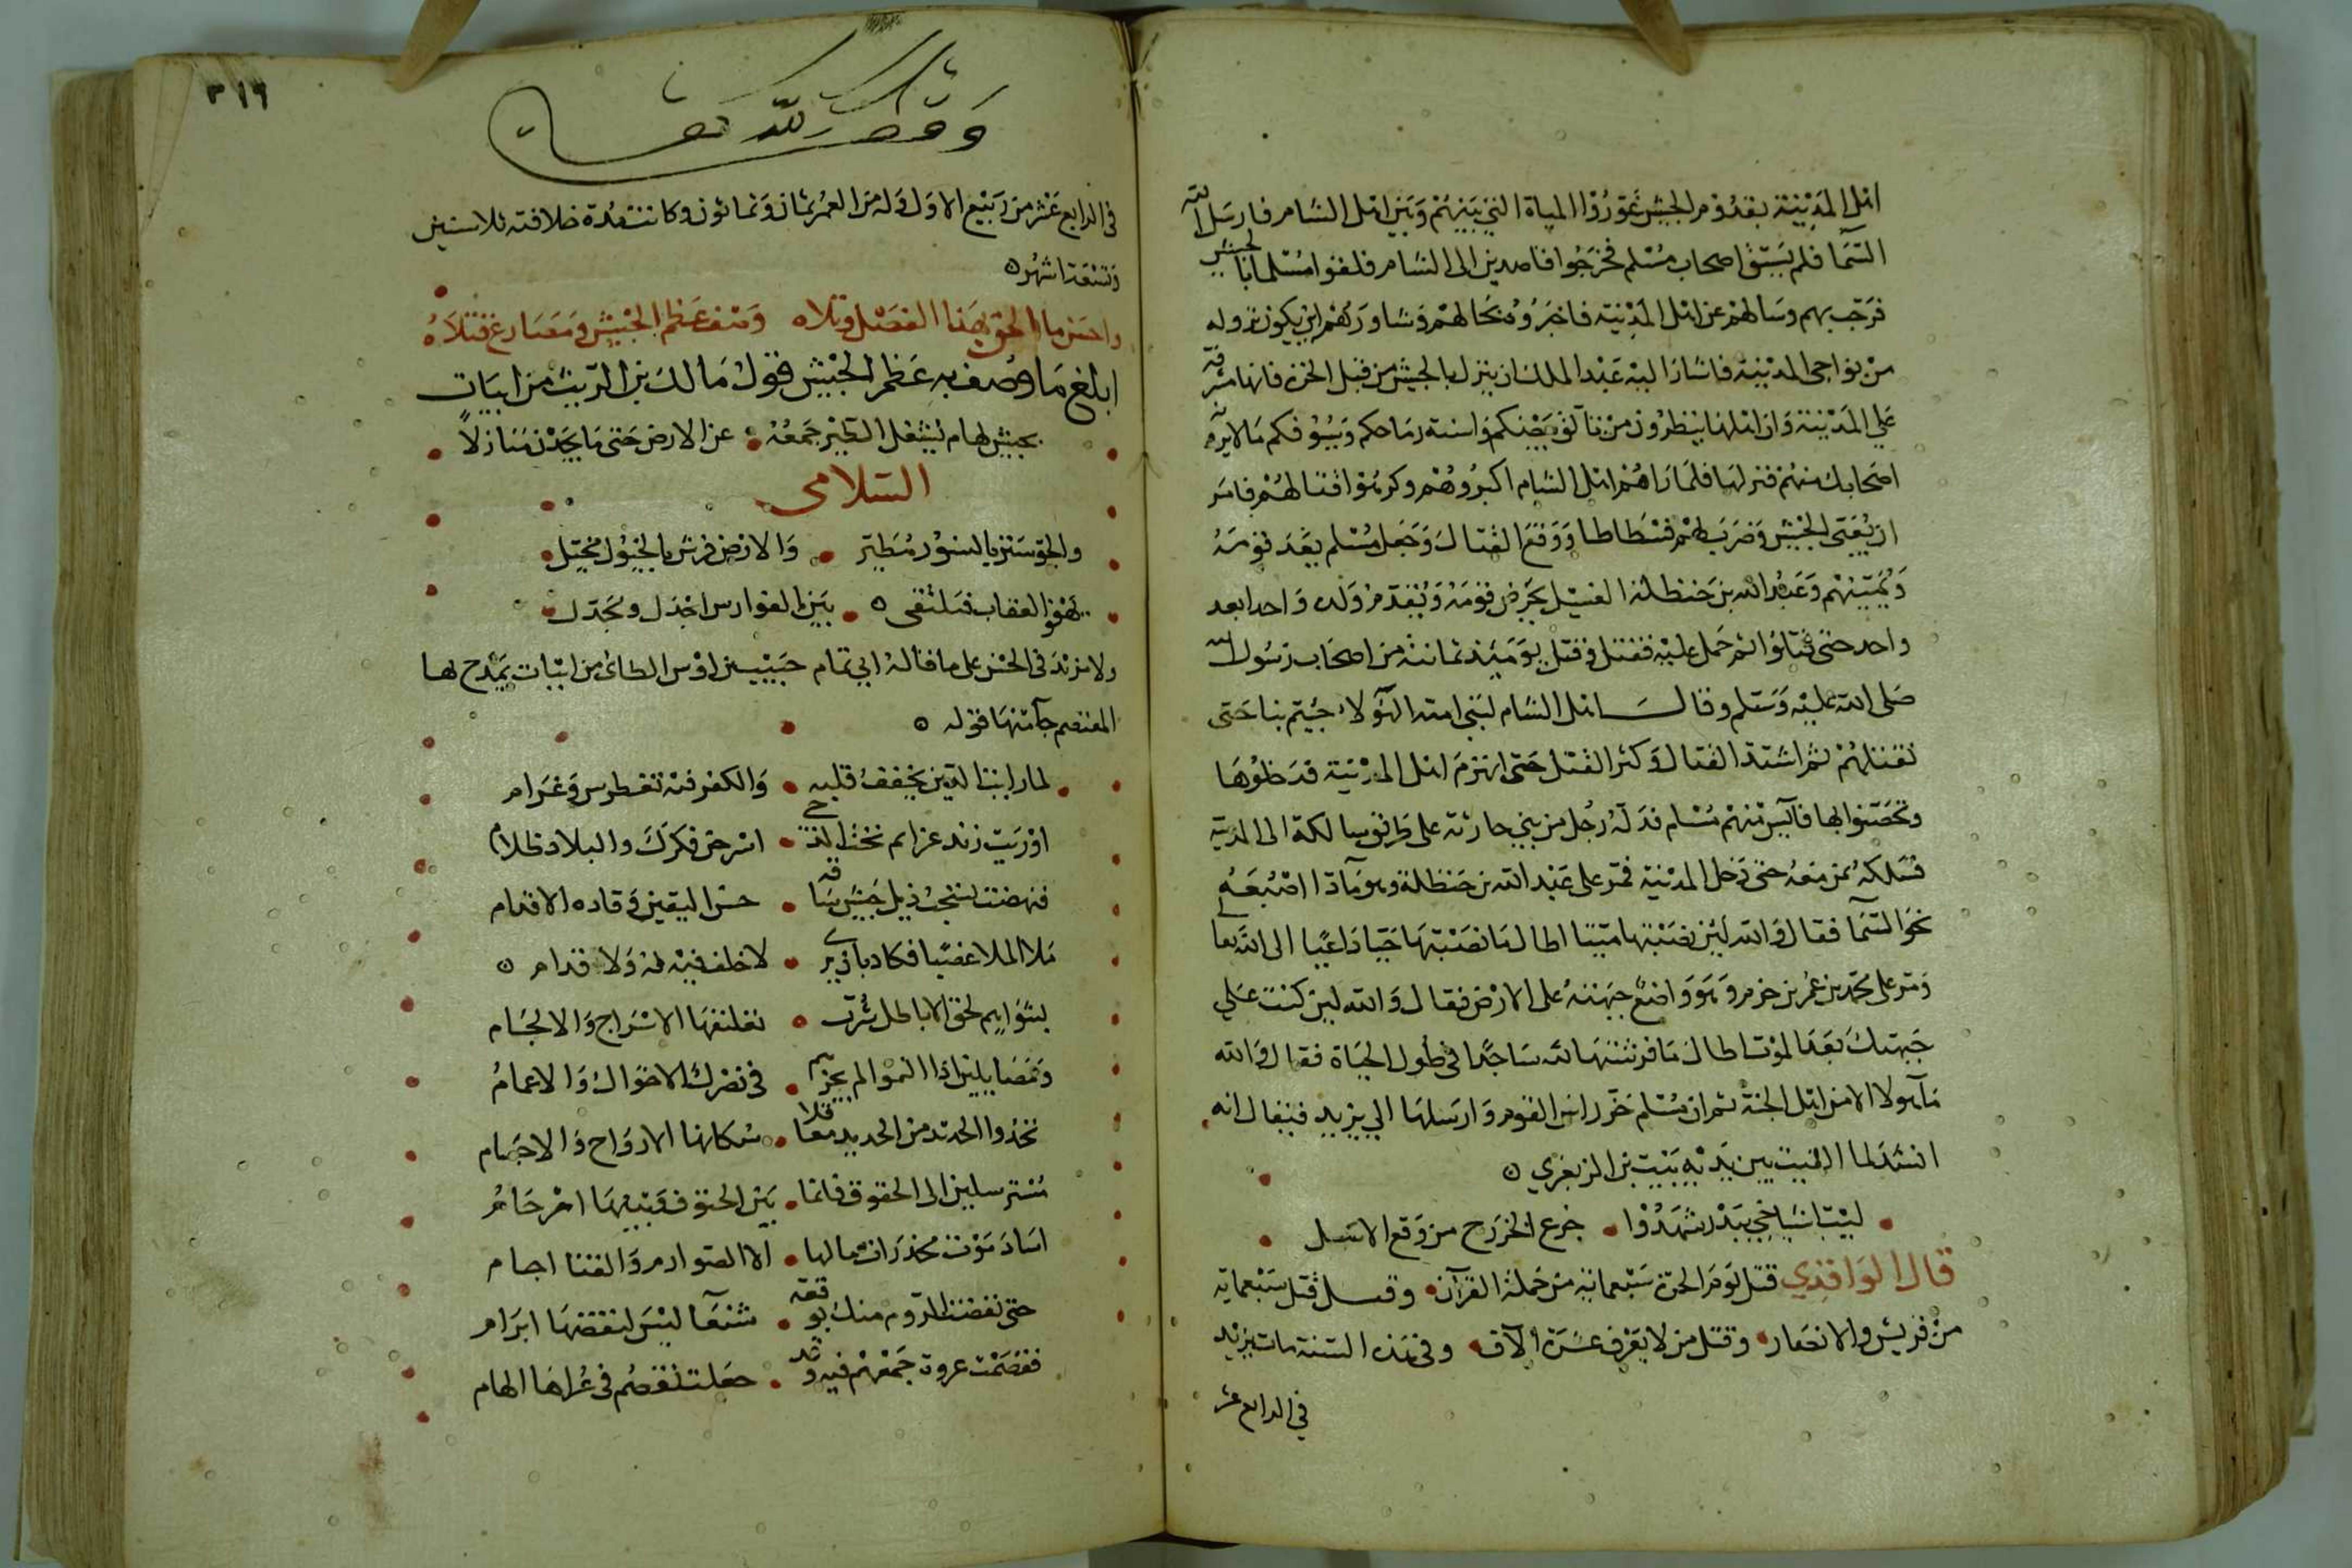 اهل المدينة بقدوم الجيش غوروا المياه التي بينهم وبين اهل الشام فارسل الله
السما فلم يستق اصحاب مسلم فخرجوا قاصدين الى الشام فلقوا مسلما بالجيش
فرحب بهم وسالهم عن اهل المدينة فاخبروه بحالهم وشاورهم اين يكون نزوله
من نواحي المدينة فاشار اليه عبد الملك ان ينزل بالجيش من قبل الحرة فانها مشرفة
على المدينة وان اهلها ينظرون من تالق بيضكم واسنة رماحكم وسيوفكم ما لا يراه
اصحابك منهم فنزلها فلما راهم اهل الشام اكبروهم وكرهوا قتالهم فامر
ان يعبى الجيش وضرب لهم فسطاطا ووقع القتال وجعل مسلم يعد قومه
ويمنيهم وعبد الله بن حنظلة الغسيل يحرض قومه ويقدم ولده واحدا بعد
واحد حتى قتلوا ثم حمل عليه فقتل وقتل يومئذ ثمانية من اصحاب رسول الله
صلى الله عليه وسلم وقال اهل الشام لبني امية الهولاء جيتم بنا حتى
نقتلهم ثم اشتد القتال وكثر القتل حتى انهزم اهل المدينة فدخلوها
وتحصنوا بها فآيس منهم مسلم فدله رجل من بني حارثة على طريق سالكة الى المدينة
فسلكه بمن معه حتى دخل المدينة فمر على عبد الله بن حنظلة وهو مادا اصبعه
نحو السما فقال والله لين نصبتها ميتا لطالما نصبتها حيا داعيا الى الله تعالى
ومر على محمد بن عمر بن حزم وهو واضع جبهته على الارض فقال والله لين كنت على
جبهتك بعد الموت لطال ما فرشتها لله ساجدا في طول الحياة فقال والله
ما هولا الا من اهل الجنة ثم ان مسلم حز راس القوم وارسلها الي يزيد فيقال انه
انشد لما القيت بين يديه بيت بن الزبعري
ليت اشياخي ببدر شهدوا • جزع الخزرج من وقع الاسل
قال الواقدي قتل يوم الحرة سبعماية من حملة القرآن • وقيل قتل سبعماية
من قريش والانصار • وقتل من لا يعرف عشرة الآف • وفي هذه السنة مات يزيد
في الرابع عشر
٣١٦
وقف لله تعالى
في الرابع عشر من ربيع الاول وله من العمر ثمان وثمانون وكانت مدة خلافته ثلاث سنين
وتسعة اشهر
واحسن ما الحق بهذا الفصل وتلاه وصف عظم الجيش ومصارع قتلاه
ابلغ ما وصف به عظم الجيش قول مالك بن الريب من ابيات
بجيش لهام يشغل الطير جمعه • عن الارض حتى ما يجدن منازلا
السلامى
والجو ستر بالنسور مطير • والارض فرش بالخيول مخيل
تهفو العقاب فتلتقى • بين الفوارس اجدل ومجدل
ولا مزيد في الحسن على ما قاله ابي تمام حبيب بن اوس الطائي من ابيات يمدح بها
المعتصم جا منها قوله
لما راينا الدين يخفق قلبه • والكفر فيه تغطرس وغرام
اوريت زند عزائم تحت الدجى • اسرجن فكرك والبلاد ظلام
فنهضت تسحب ذيل جيش ساقه • حسن اليقين وقاده الاقدام
ملا الملا عصبا فكاد بان يرى • لا خلف فيه له ولا قدام
بشوازب لحق الاباطل شزب • تعليقها الاسراج والالجام
في نصرك الاخوال والاعمام
تخذوا الحديد من الحديد معاقلا • سكانها الارواح والاجسام
مسترسلين الى الحتوف فانما • بين الحتوف وبينها ارحام
اساد موت مخدرات مالها • الا الصوارم والقنا اجام
حتى نقضت الروم منك بوقعة • شنعآ ليس لنقضها ابرام
ففصمت عروة جمعهم فيه وقد • جعلت تفصم في عراها الهام